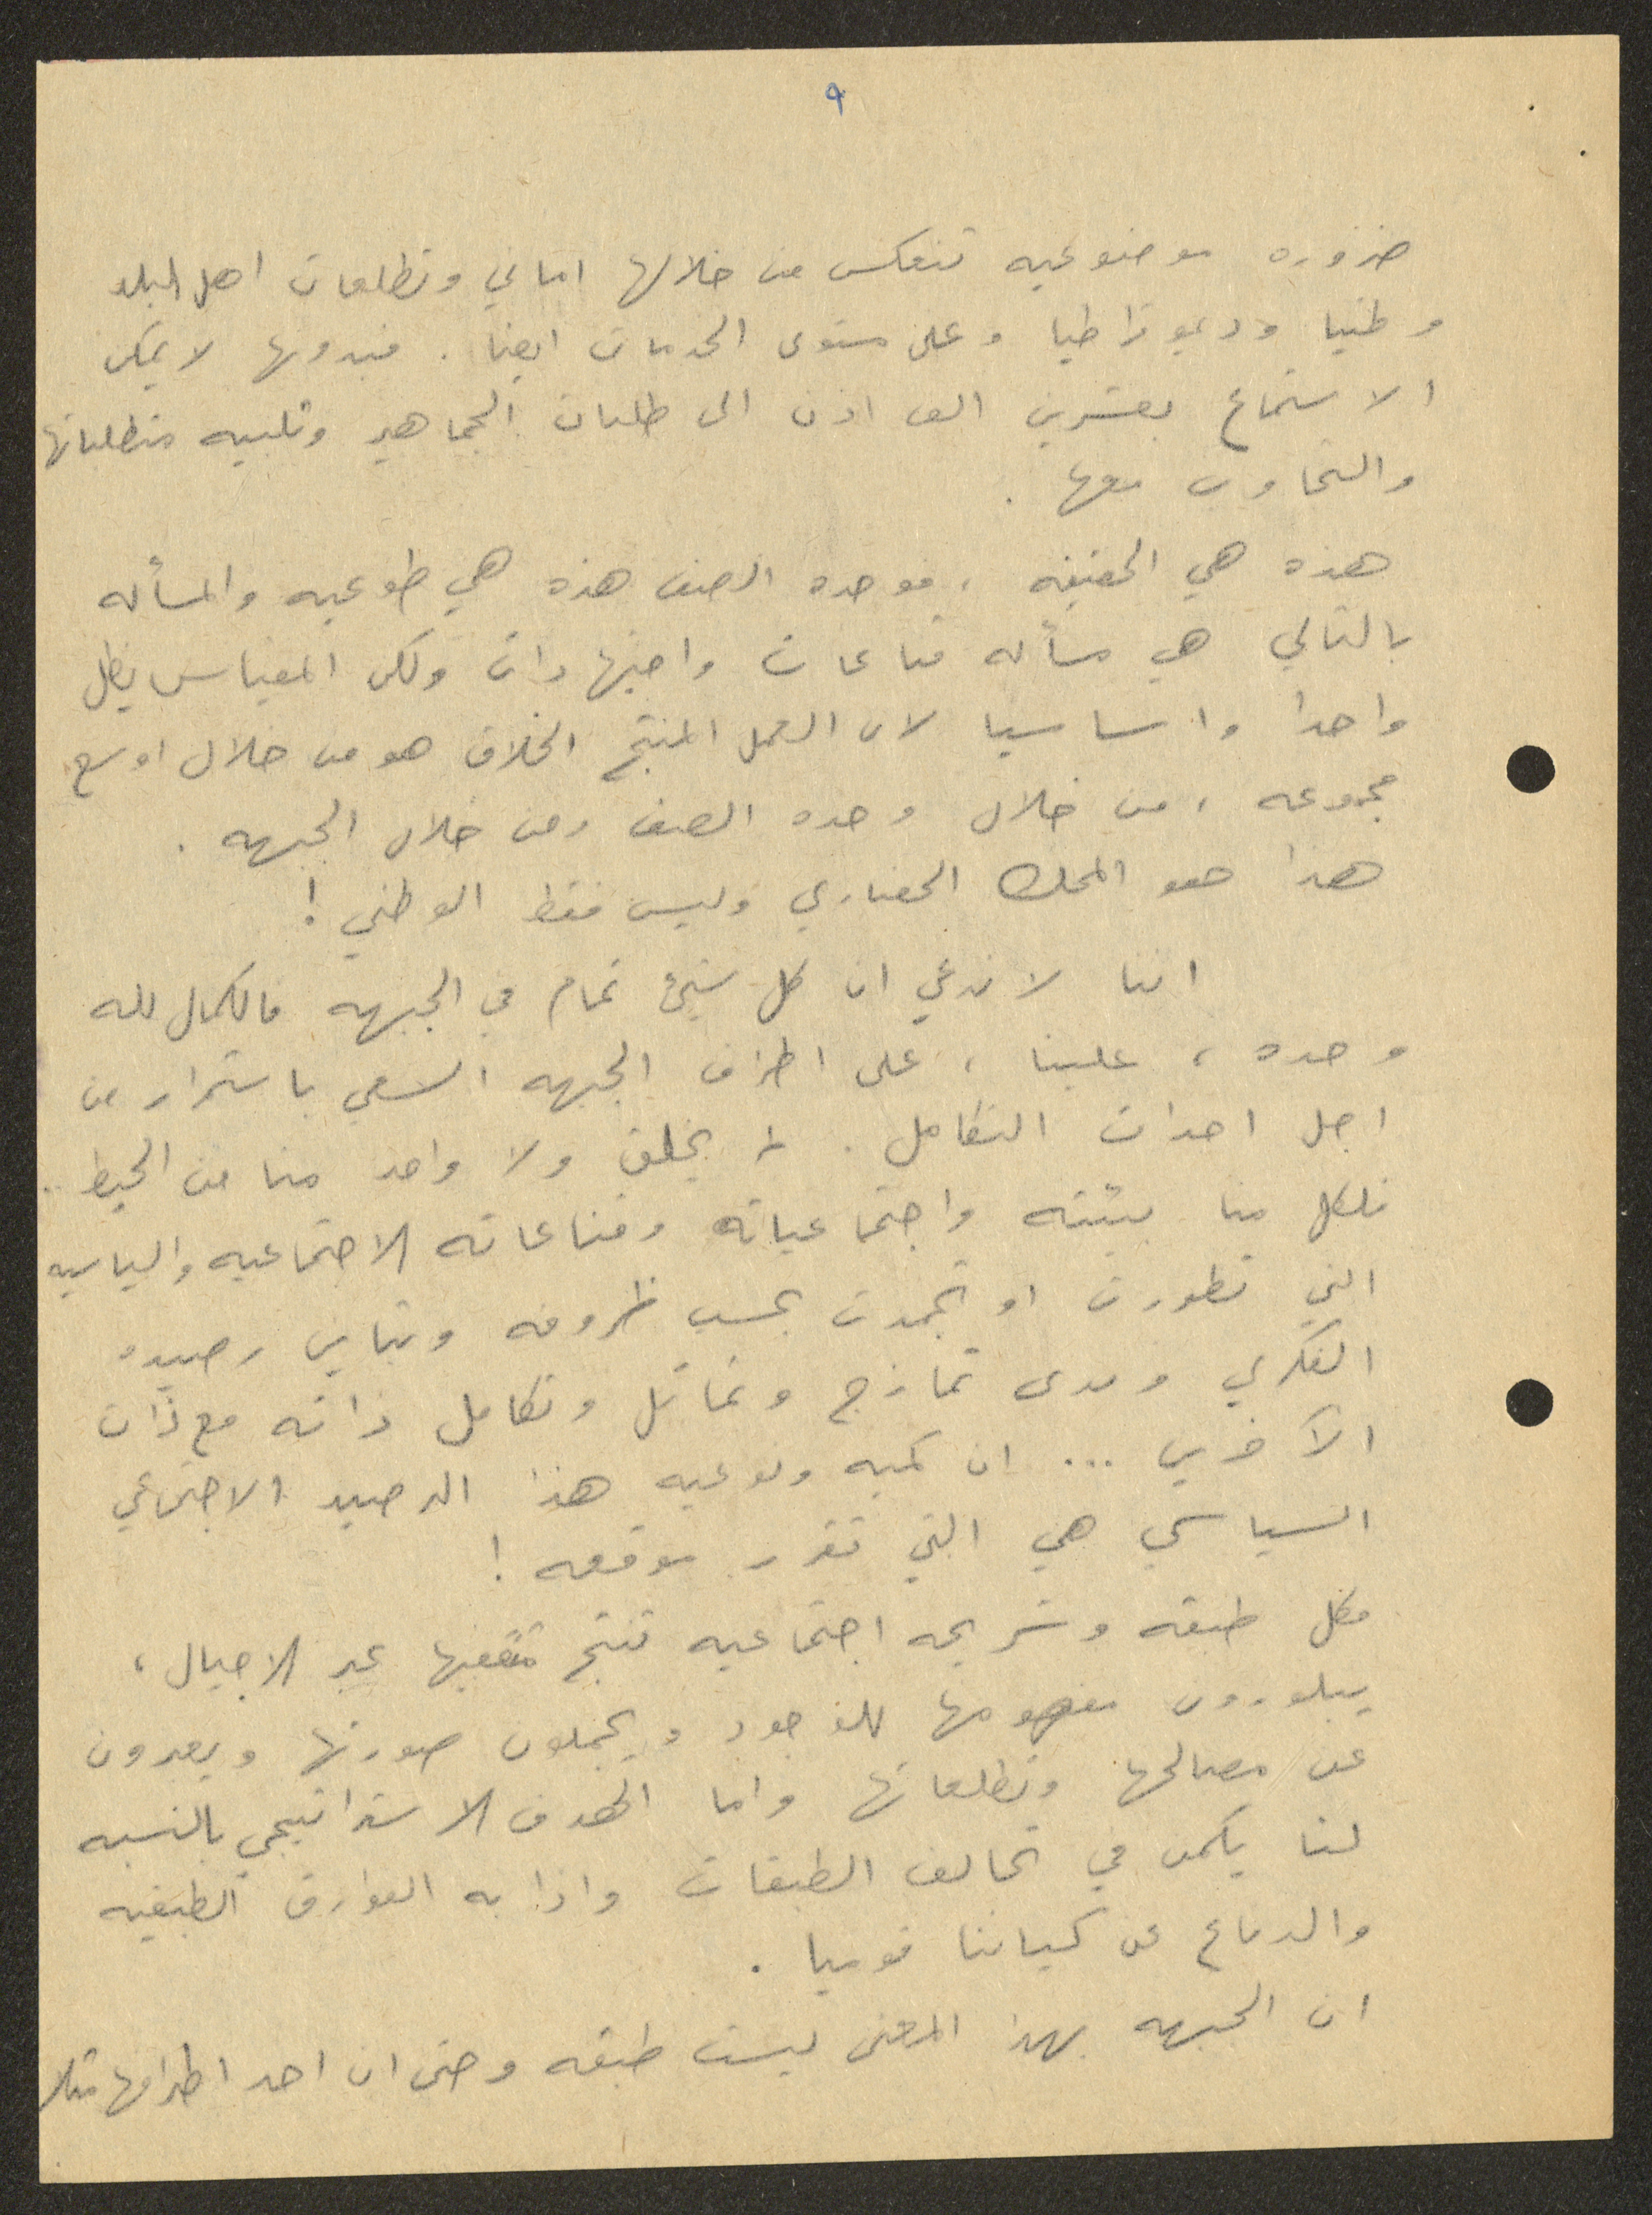 ٩
ضروره موضوعيه تنعكس من خلالها اماني وتطلعات اهل البلد
وطنيا وديموقراطيا وعلى مستوى الخدمات ايضا . فبدونها لا يمكن
الاستماع بعشرين الف اذن الى طلبات الجماهير وتلبيه متطلباتها
والتجاوب معها .
هذه هي الحقيقه ، فوحده الصف هذه هي طوعيه والمسأله
بالتالي هي مسأله قناعات واجتهادات ولكن المقياس يظل
واحدا واساسيا لان العمل المنتج الخلاق هو من خلال اوسع
مجموعه ، من خلال وحده الصف ومن خلال الجبهه .
هذا هو المحك الحضاري وليس فقط الوطني !
اننا لا ندعي ان كل شيئ تمام في الجبهه فالكمال لله
وحده ، علينا ، على اطراف الجبهه السعي باستمرار من
اجل احداث التكامل . لم يخلق ولا واحد منا من الحيط ..
فلكل منا بيئته واجتماعياته وقناعاته الاجتماعيه والسياسيه
التي تطورت او تجمدت بحسب ظروفه وتباين رصيده
الفكري ومدى تمازج وتماثل وتكامل ذاته مع ذات
الآخرين ... ان كميه ونوعيه هذا الرصيد الاجتماعي
السياسي هي التي تقرر موقعه !
فكل طبقه وشريحه اجتماعيه تنتج مثقفيها عبر الاجيال ،
يبلورون مفهومها للوجود ويجملون صورتها ويعبرون
عن مصالحها وتطلعاتها واما الهدف الاستراتيجي بالنسبه
لنا يكمن في تحالف الطبقات واذابه الفوارق الطبقيه
والدفاع عن كياننا قوميا .
ان الجبهه بهذا المعنى ليست طبقه وحتى ان احد اطرافها مثلا